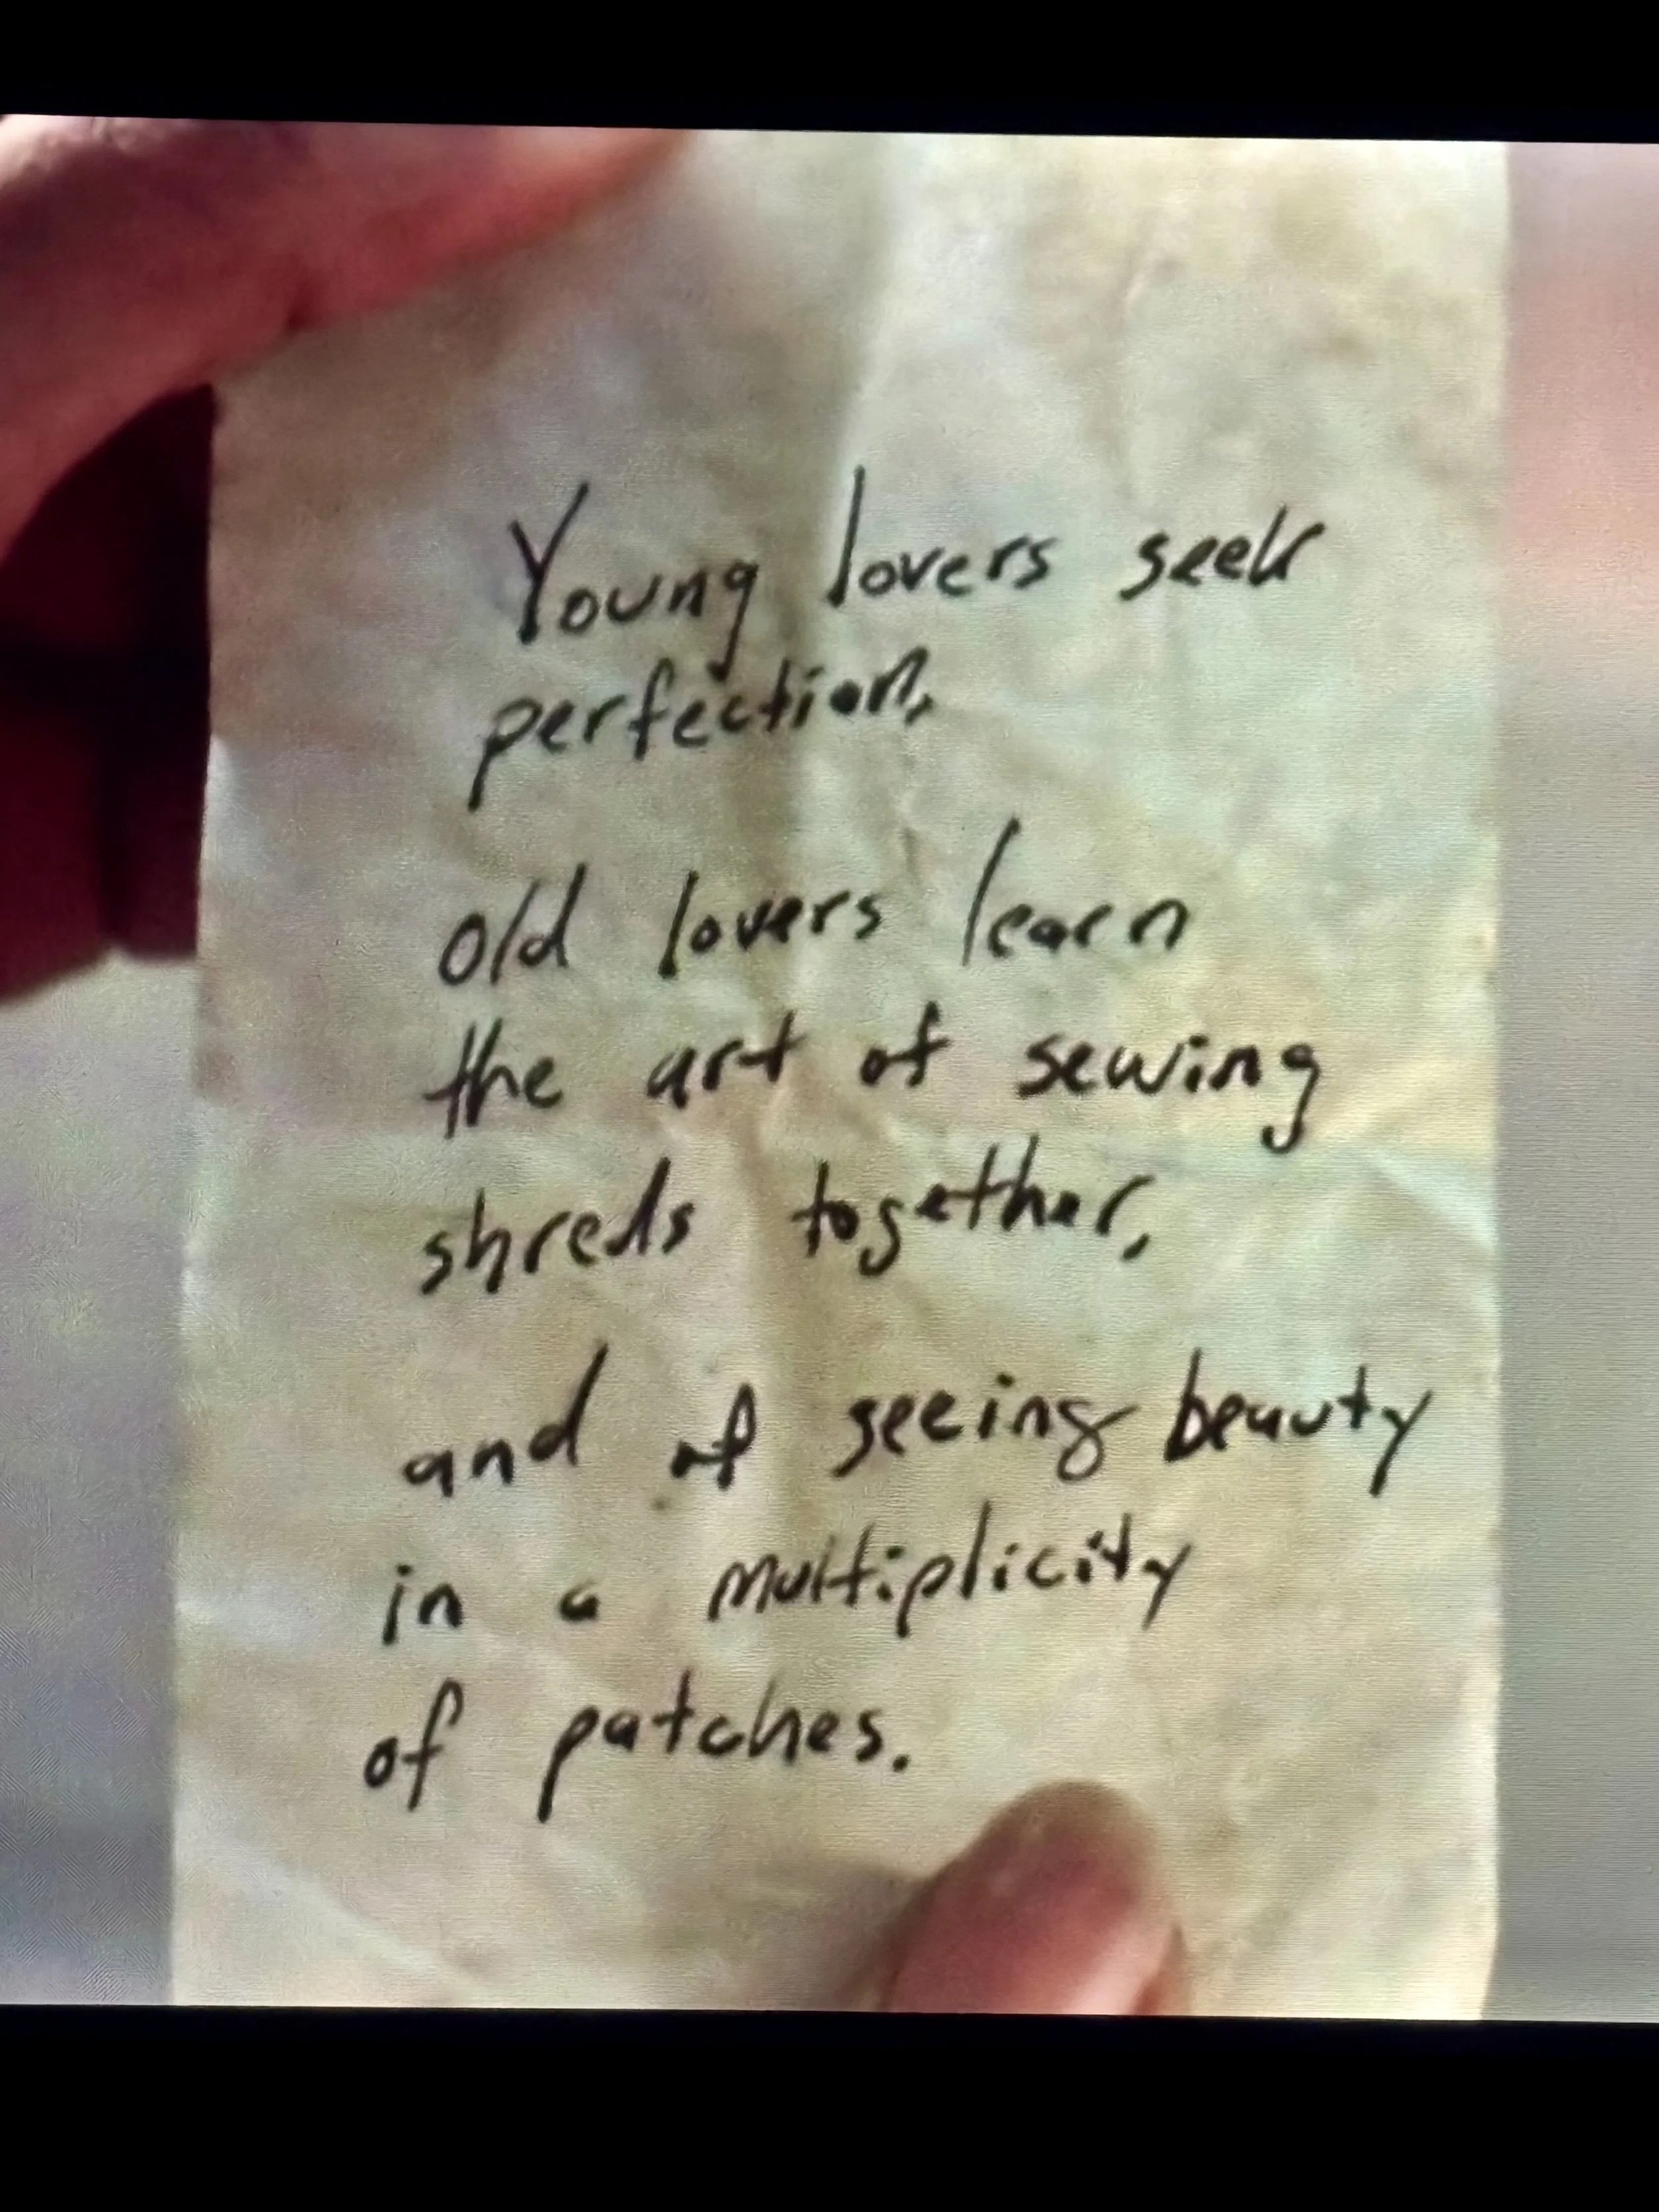 Young lovers seek
perfection,
Old lovers learn
the art of sewing
shreds together,
and of seeing beauty
in a multiplicity
of patches.